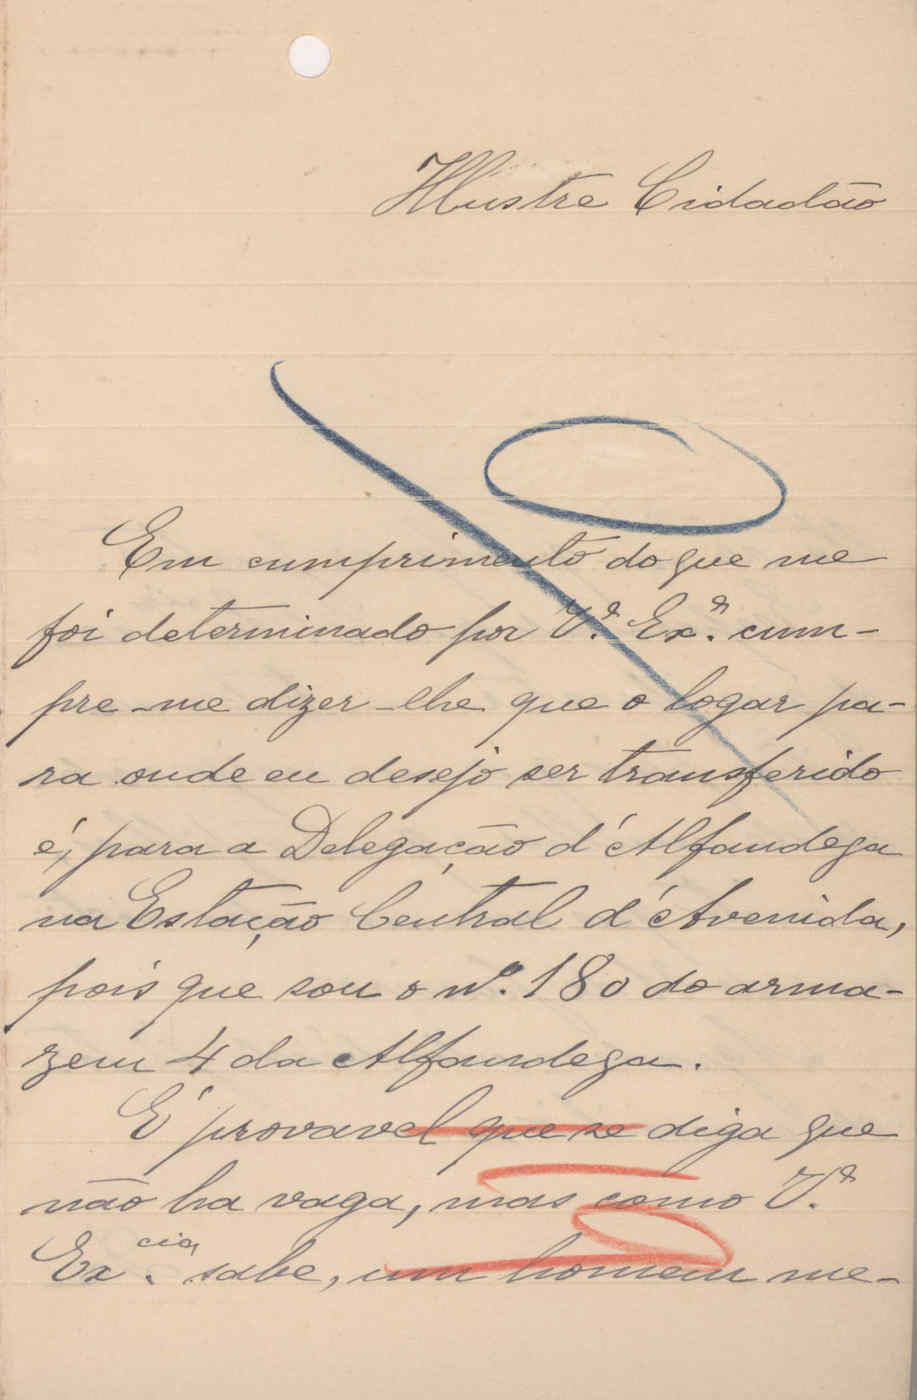 Illustre Cidadão
Em cumprimento do que me
foi determinado por V.ª Ex.ª cum-
pre-me dizer-lhe que o logar pa-
ra onde eu desejo ser transferido
é, para a Delegação d'Alfandega
na Estação Central d'Avenida,
pois que sou o nº. 180 do arma-
zem 4 da Alfandega.
É provavel que se diga que
não ha vaga, mas como V.ª
Ex.cia sabe, um homem me-